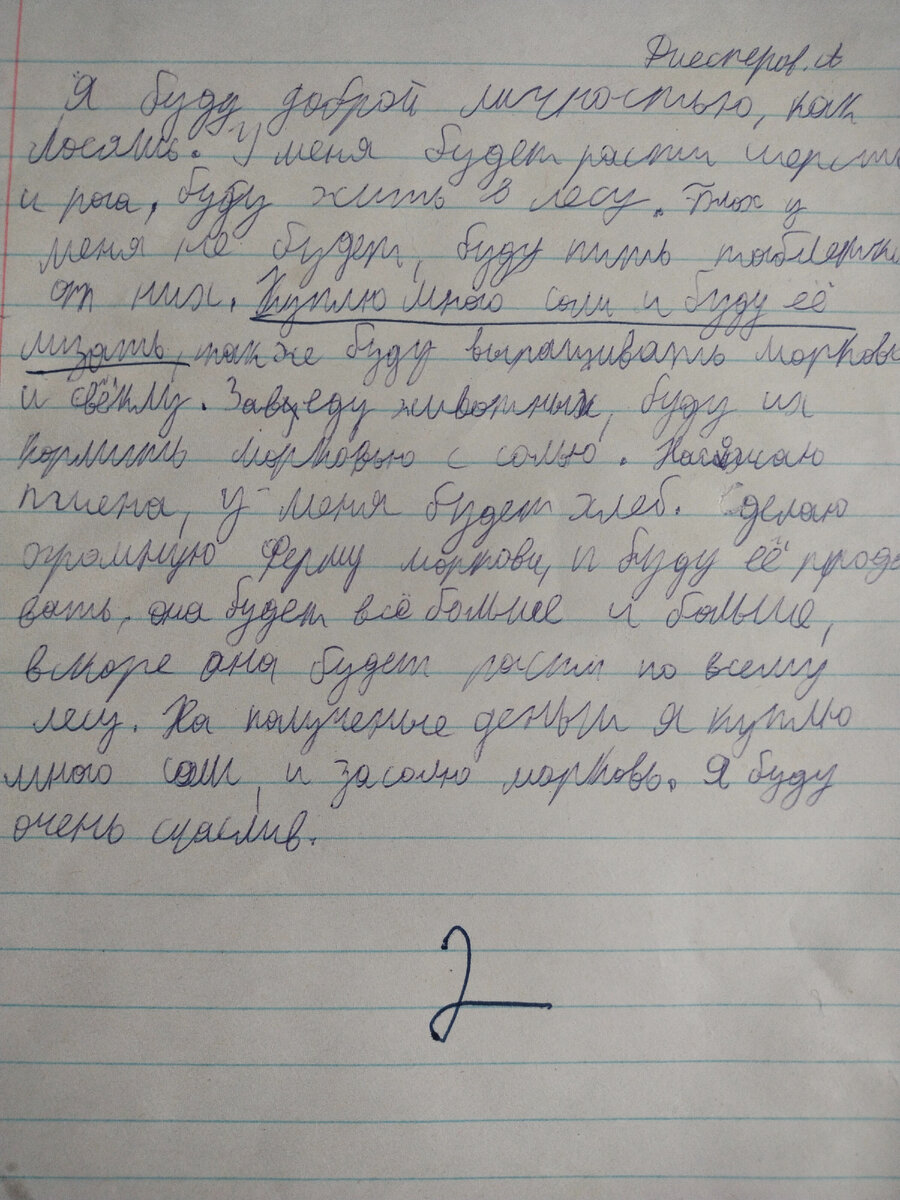 Днестеров. А
Я буду доброй личностью, как
Лосяшь. У меня будет расти шерсть
и рога, буду жить в лесу. Блох у
меня не будет, буду пить таблетки
от них. Куплю много соли и буду её
лизать, также буду выращивать морковь
и свёклу. Заведу животных, буду их
кормить морковью с солью.
пшена, у меня будет хлеб. Сделаю
огромную ферму моркови, и буду её прода
вать, она будет всё больше и больше,
вскоре она будет расти по всему
лесу. На полученые деньги я куплю
много соли, и засолю морковь. Я буду
очень щаслив.
2